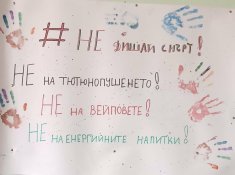 # НЕ ДИШАЙ СМЪРТ!
НЕ НА ТЮТЮНОПУШЕНЕТО!
НЕ НА ВЕЙПОВЕТЕ!
НЕ НА ЕНЕРГИЙНИТЕ НАПИТКИ!